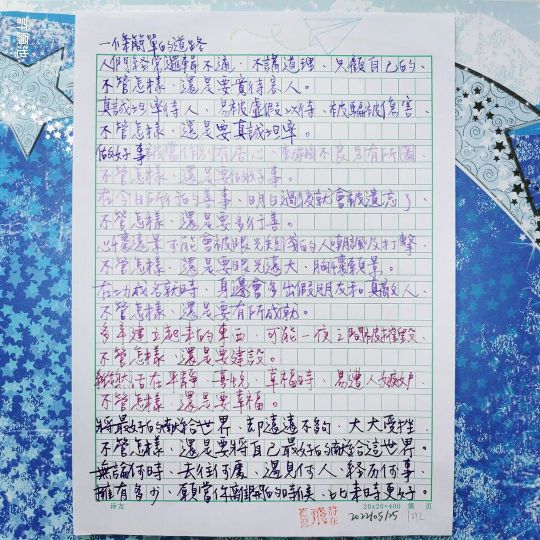 許願池
一條簡單的道路
人們經常邏輯不通、不講道理、只顧自己的、
不管怎樣，還是要寬待客人。
真誠坦率待人，易被虛假以待、被騙被傷害、
不管怎樣，還是要真誠坦率。
做好事被當作別有居心、
不管怎樣，還是要做好事。
在今日所行的善事，明日過後就會被遺忘了、
不管怎樣，還是要多行善。
心懷遠業可能會被眼光短淺的人嘲諷及打擊、
不管怎樣，還是要眼光遠大、胸懷願景。
在功成名就時，身邊會多出假朋友和真敵人、
不管怎樣，還是要有所成就。
多年建立起來的東西，可能一夜之間被摧毀、
不管怎樣，還是要建設。
狀活在平靜、喜悅、幸福時，易遭人嫉妒、
不管怎樣，還是要幸福。
將最好的獻給世界，卻遠遠不夠，大大受挫、
不管怎樣，還是要將自己最好的獻給這世界。
無論何時、去往何處、遇見何人、經历何事、
擁有多少，願當你離開的時候，比來時更好。
诗友
20×20=400 第 頁
2022/05/25